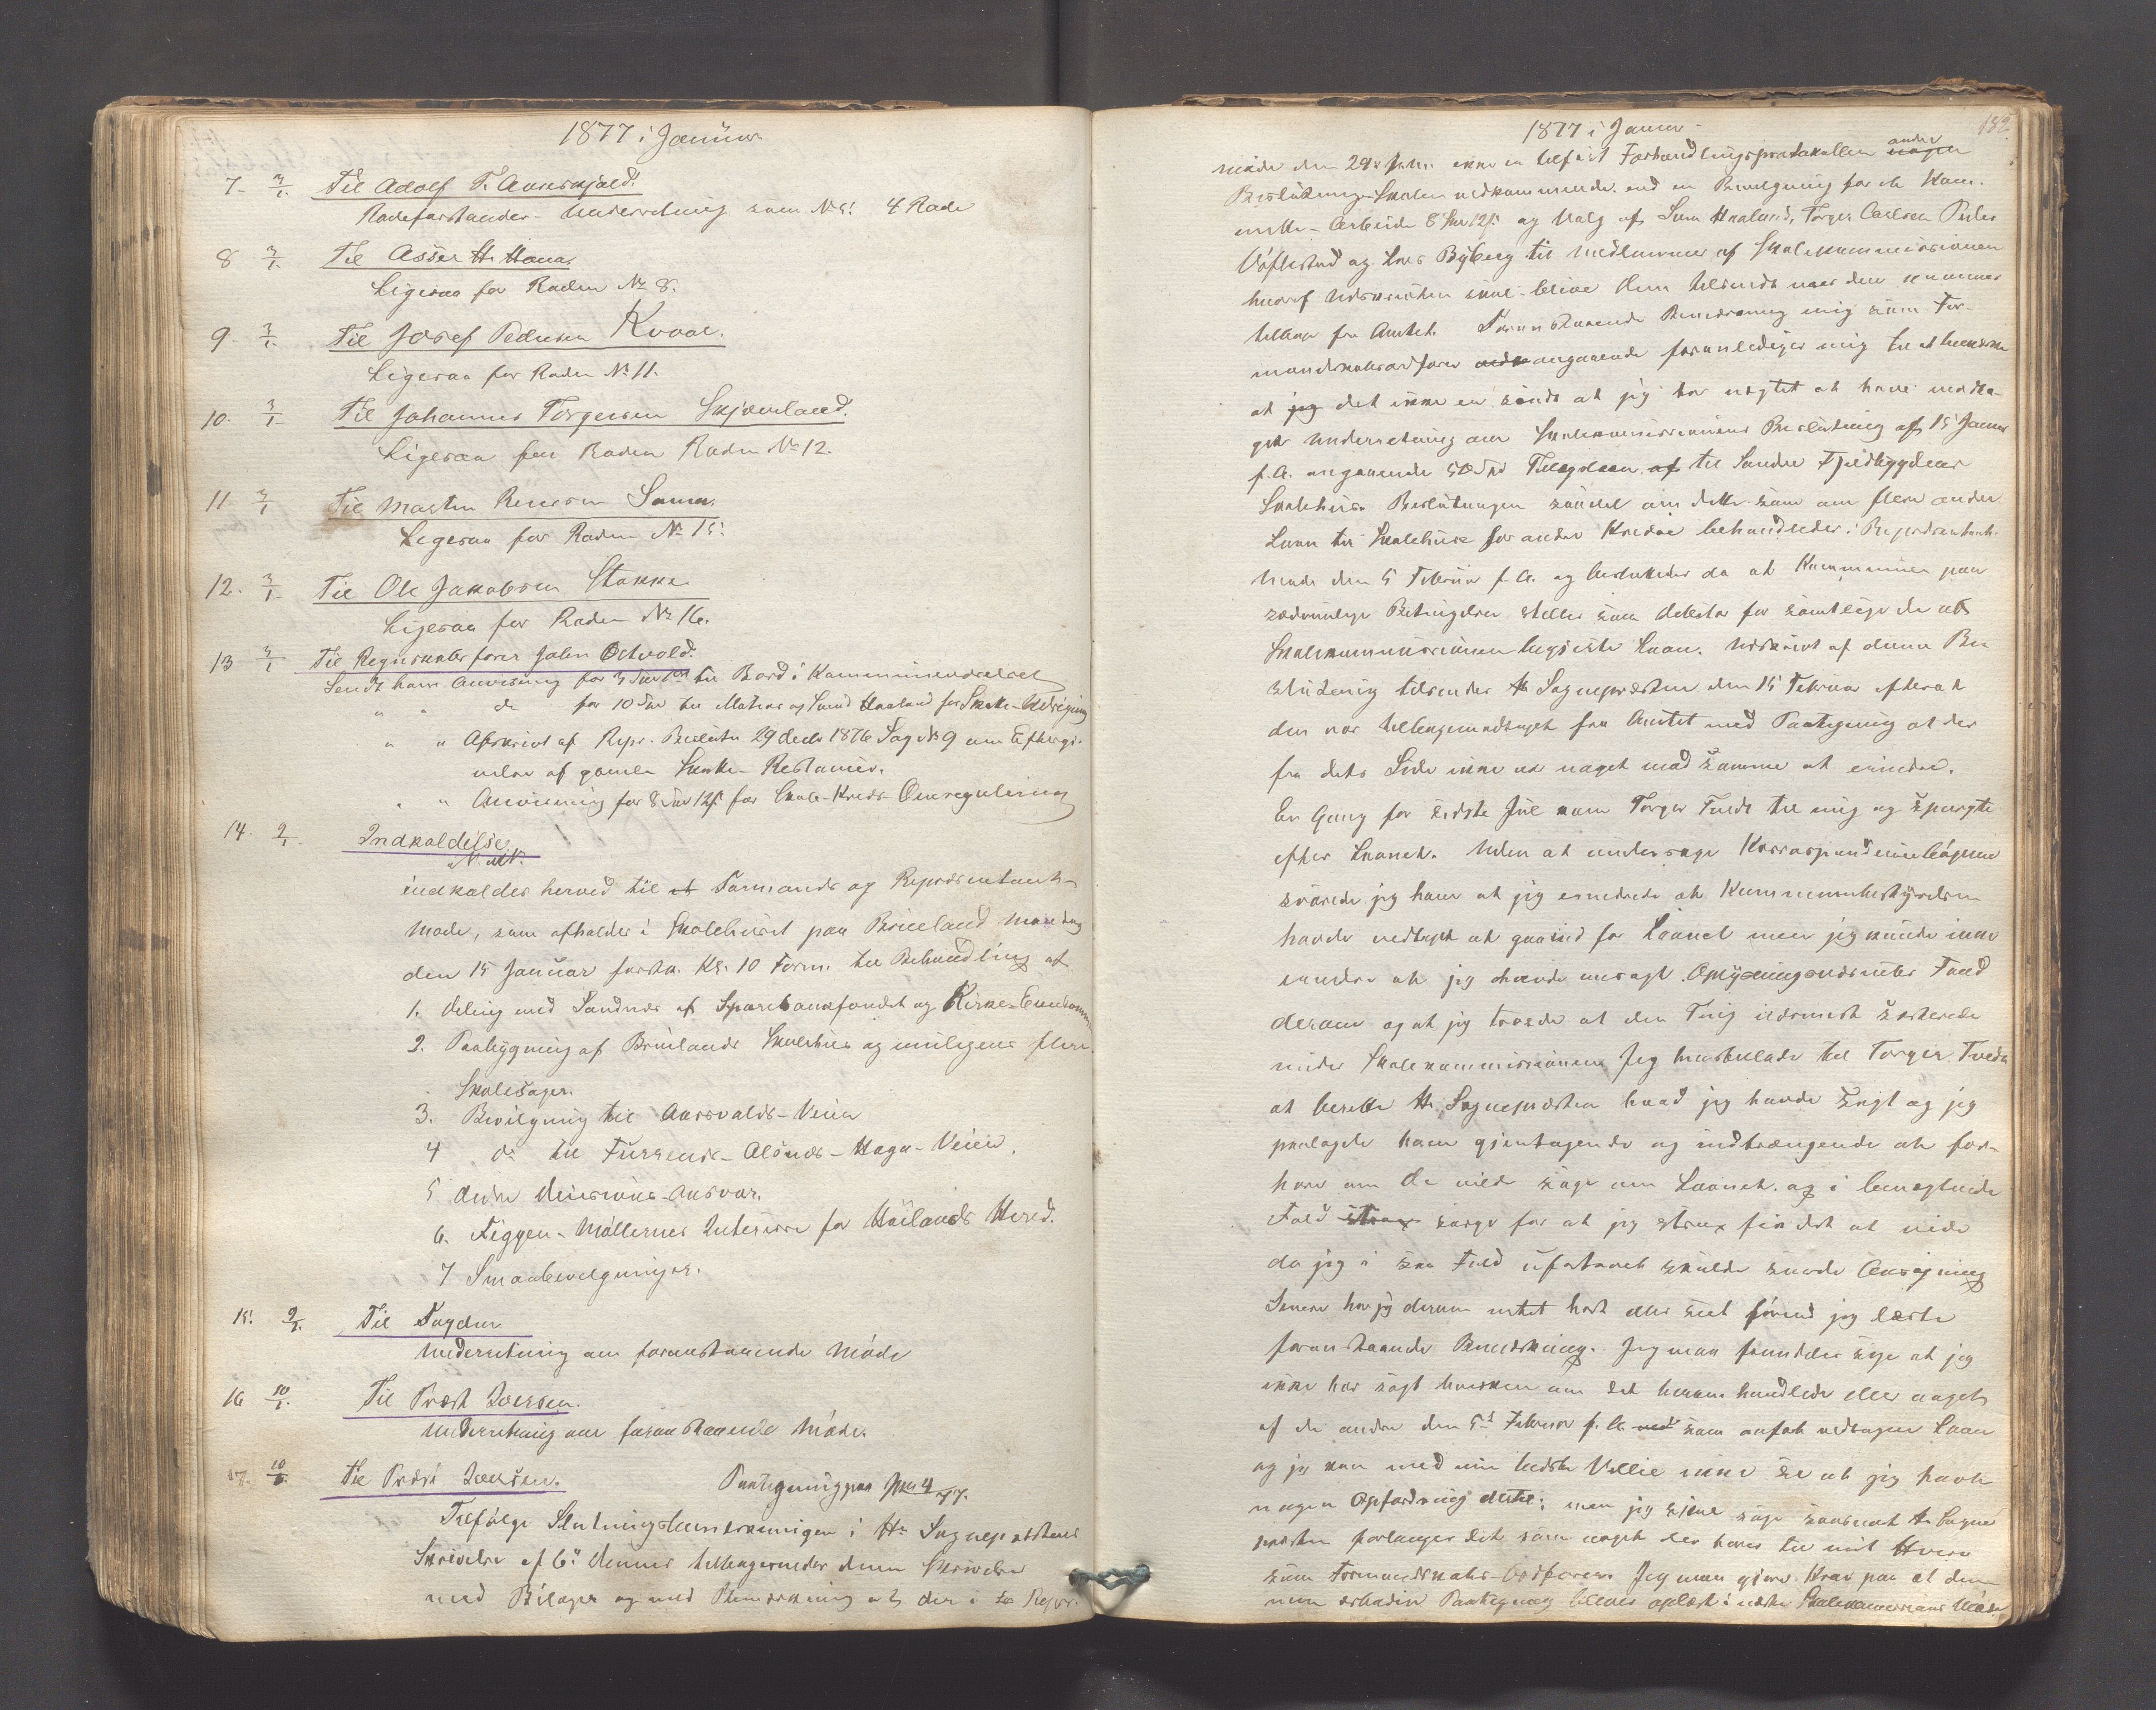 1877 i Januar
7. 3/1. Til Adolf T. Auestjold.
Rodeforstander-Underretning som No 5! 4 Rode
8 3/1. Til Asser H. Hana.
Ligesaa for Roden No 8.
9. 3/1. Til Josef Pedersen Kvaal.
Ligesaa for Roden No 11.
10. 3/1. Til Johannes Torgersen Skjævland.
Ligesaa for Roden Roden No 12.
11. 3/1 Til Morten Soma.
Ligesaa for Roden No 15.
12. 3/1 Til Ole Jakobsen Stokke.
Ligesaa for Roden No 16.
13 3/1 Til Regnskabsfører John Østvold.
Sendt ham Anvisning for til Bord i Kommunelocalet
" " do for 10 til Matias og Svend Haaland for Skole-Udvisning
" " Afskrivt af Repr. Beslutn 29 decb 1876 Sag No 9 om Eftergi-
velse af gamle Skatte-Restancer.
" " Anvisning for 8 12 for Skole-Kreds-Omregulering
14. 9/1 Indkaldelse
N. N.
indkaldes herved til Formands og Repræsentant-
møde, som afholdes i Skolehuset paa Brueland Mandag
den 15 Januar førstk. Kl. 10 Form. til Behandling af
1. Deling med Sandnes af Sparebankfondet og Kirke-Eiendomm
2. Paabygning af Bruelands Skolehus og muligens flere
Skolesager.
3. Bevilgning til Aarsvolds-Veien
4 do til Fursenes-Alsnes-Hogn-Veien.
5 Ansvar.
6. Figgen-Møllernes Interesse for Høilands Hered.
7 Smaabevilgninger.
15. 9/1. Til Fogden
Underretning om foranstaaende Møde
16 10/1. Til Præst Iversen.
Underretning om foranstaaende Møde.
17. 10/1. Til Præst Iversen. Paategning paa 4/77.
Tilfølge Slutningsbemærkningen i Hr Sognepræstens
Skrivelse af 6te dennes tilbagesendes denne Skrivelse
med Bilager og med Bemærkning at der i Repr.
1877 i Januar 182.
møde den 29 ikke er tilført Forhandlingsprotokollen nogen anden
Beslutning Skolen vedkommende end en Bevilgning for
Arbeide 8 12 og Valg af Haaland, Torger Carlsen Peder
og Lars Byberg til Medlemmer af Skolekommissionen
hvoraf Udskriften skal blive Dem tilsendt naar den kommer
tilbage fra Amtet. Foranstaaende Bemærkning mig som For-
mandskabsordfører angaaende foranlediger mig til at bemærke
at jeg det ikke er sandt at jeg har nægtet at have modta-
get Underretning om Skolekommissionens Beslutning af 15 Januar
f. A. angaaende til Søndre Fjeldbygdens
Skolehus. Beslutningen saavel om dette som om flere andre
Laan til Skolehuse for andre Kredse behandledes i Repræsentant-
møde den 5 Februar f. A. og besluttedes da at Kommunen paa
sædvanlige Betingelser stilles som debitor for samtlige de af
Skolekommissionen begjærte Laan. Udskrivt af denne Be
slutning tilsendtes Hr Sognepræsten den 15 Februar efterat
den var tilbagemodtaget fra Amtet med Paategning at der
fra dets Side ikke var noget mod samme at erindre.
En Gang før sidste Jul kom Torger Tveds til mig og spurgte
efter Laanet. Uden at undersøge Korrespondencebøgerne
svarede jeg ham at jeg erindrede at Kommunebestyrelsen
havde vedtaget at gaa ind for Laanet men jeg kunde ikke
erindre at jeg havde
derom og at jeg troede at den Ting nærmest sorterede
under Skolekommissionen. Jeg til Torger Tveds
at berette Hr. Sognepræsten hvad jeg havde sagt og jeg
paalagde ham gjentagende og indtrængende at for-
høre om de vilde søge om Laanet og i benægtende
Fald strax sørge for at jeg strax fik det at vide
da jeg i saa Fald ufortøvet skulde sende Ansøgning
Senere har jeg derom intet hørt eller seet førend jeg læste
foranstaaende Bemærkning. Jeg maa fremdeles sige at jeg
ikke har søgt hverken om det herom handlede eller noget
af de andre den 5te Februar f. A. som anført vedtagne Laan
og jeg kan med min bedste Villie ikke se at jeg havde
nogen Opfordring dertil; men jeg skal søge saasnart Hr Sogne
præsten forlanger det som noget der hører til mit Hverv
som Formandskabs-Ordfører. Jeg maa gjøre Krav paa at denne
min Paategning bliver oplæst i næste Skolekommissions Møde